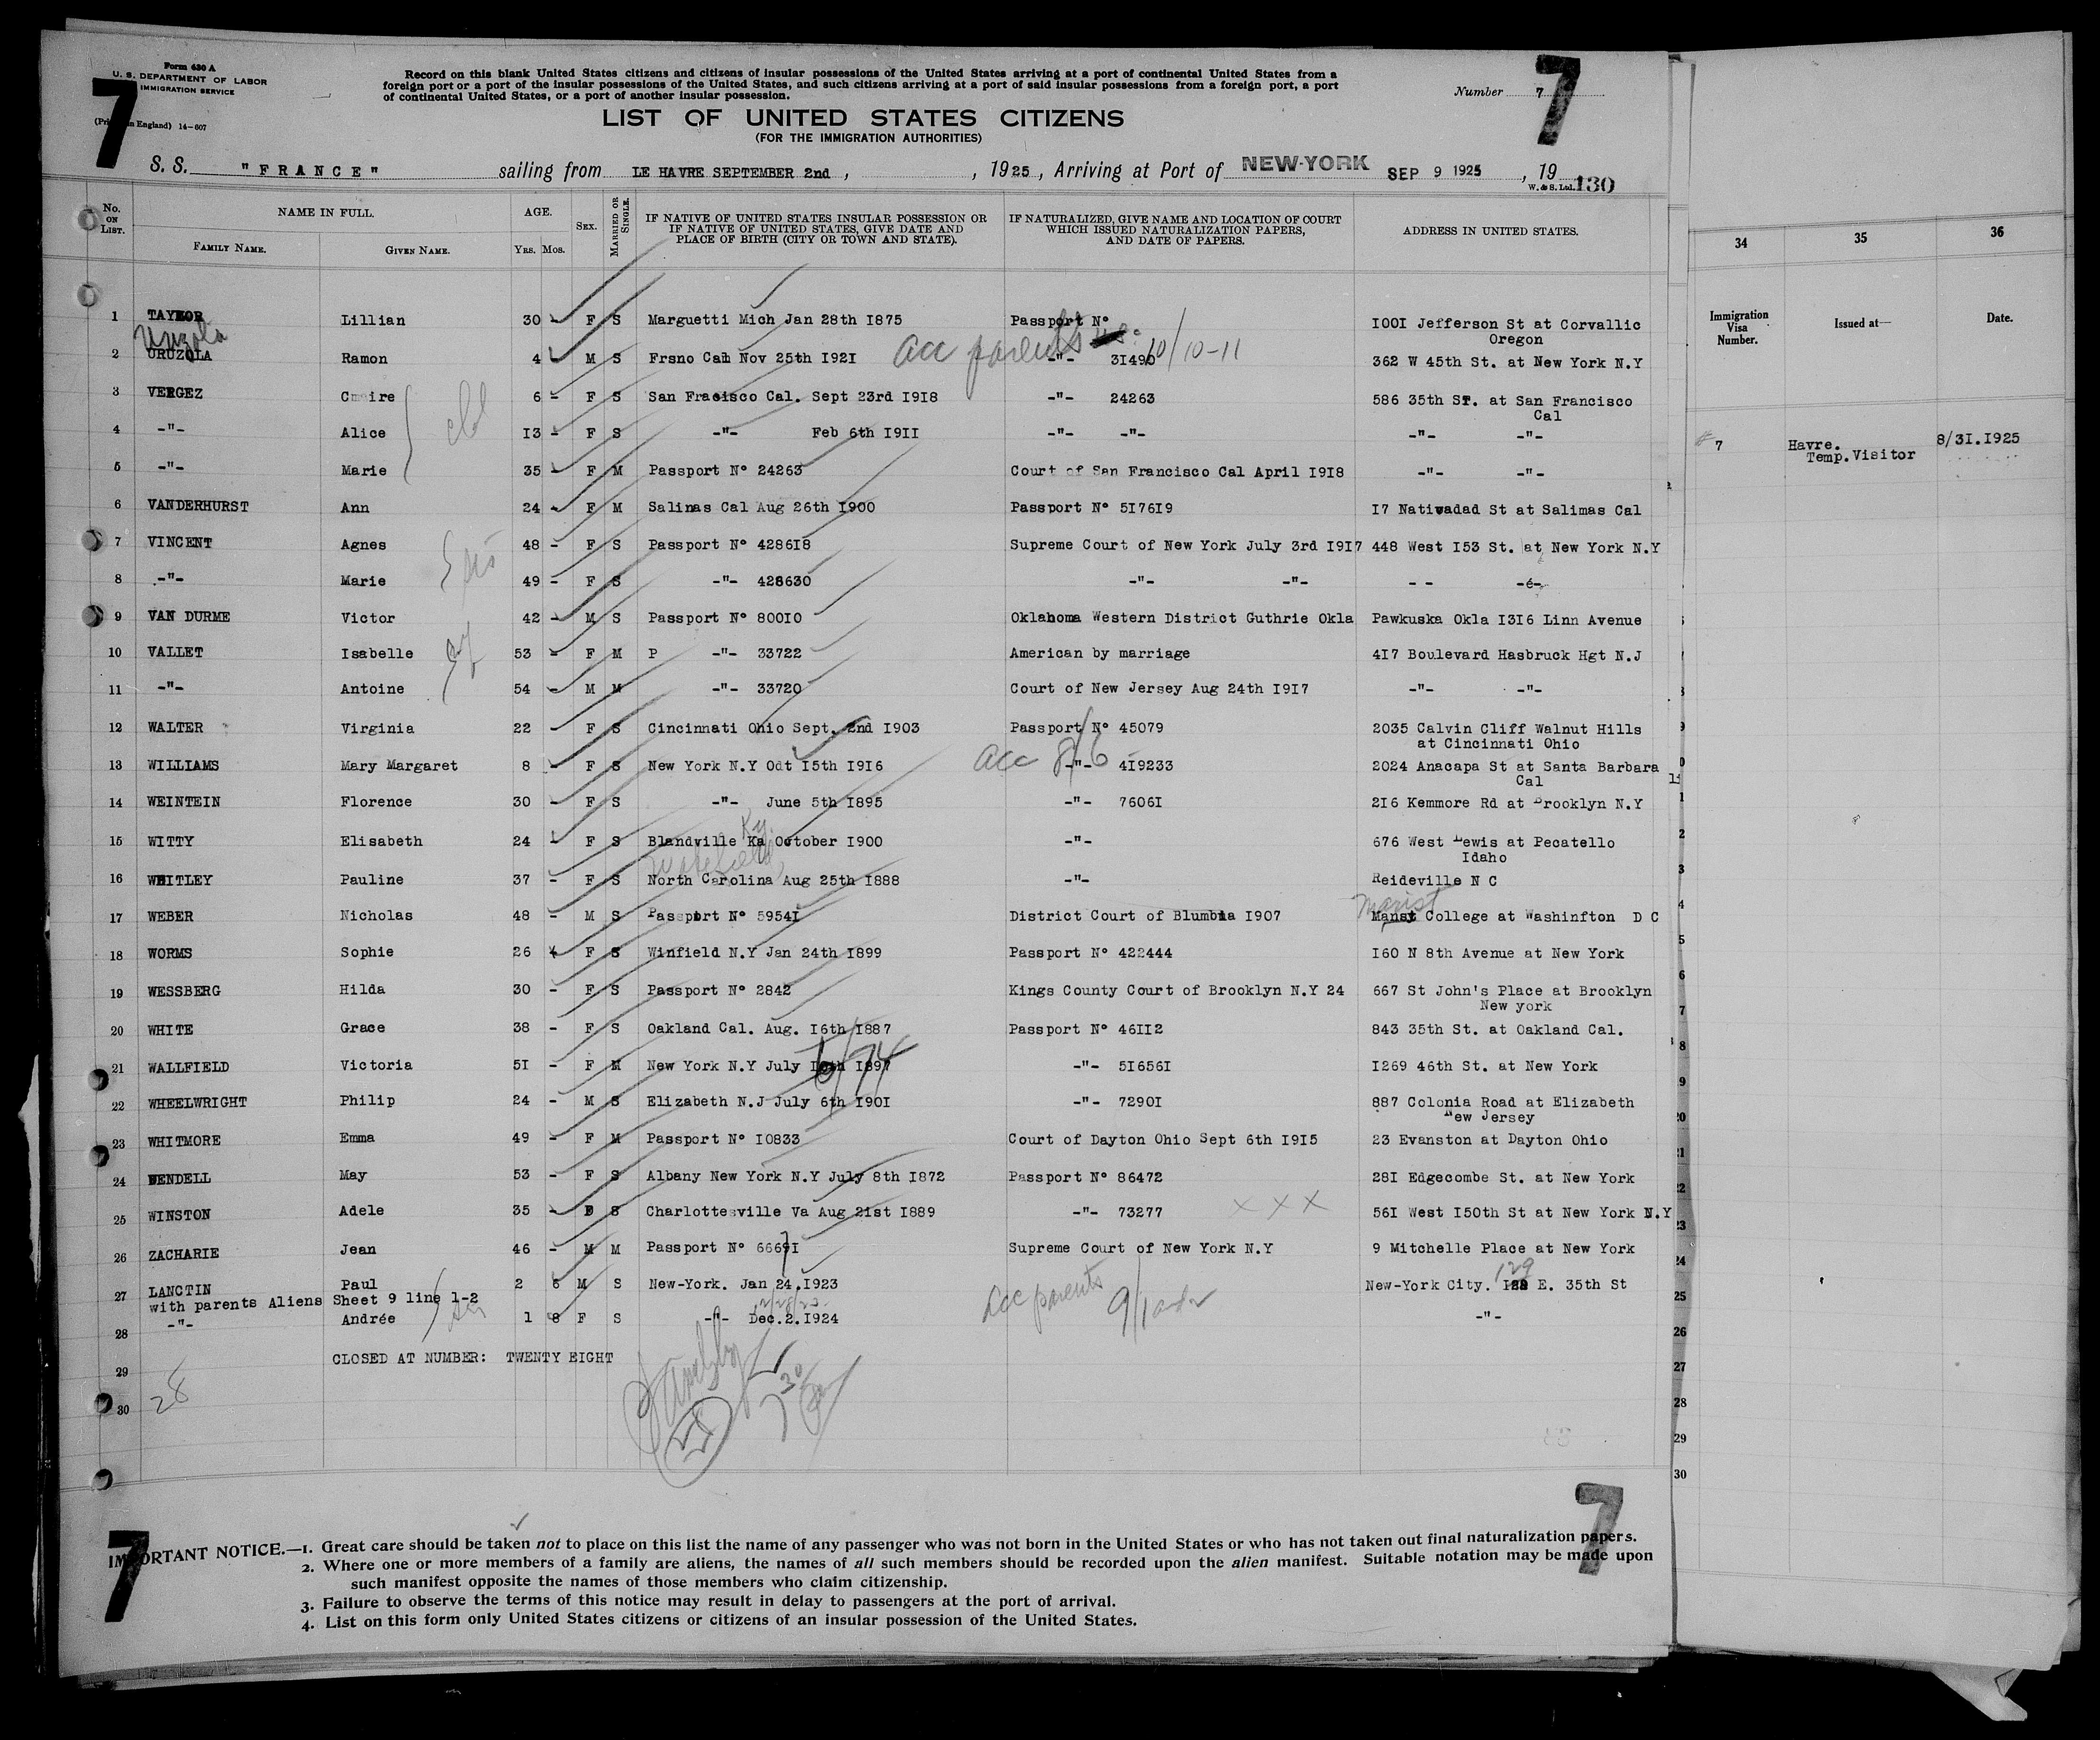 Form 630 A
U. S. DEPARTMENT OF LABOR
IMMIGRATION SERVICE
in England) 14-607
7
Record on this blank United States citizens and citizens of insular possessions of the United States arriving at a port of continental United States from a
foreign port or a port of the insular possessions of the United States, and such citizens arriving at a port of said insular possessions from a foreign port, a port
of continental United States, or a port of another insular possession.
Number 7
7
LIST OF UNITED STATES CITIZENS
(FOR THE IMMIGRATION AUTHORITIES)
S. S. "FRANCE" sailing from LE HAVRE SEPTEMBER 2nd, , 1925, Arriving at Port of NEW-YORK SEP 9 1925, 19
W. & S. Ltd. 130
No. ON LIST. NAME IN FULL. AGE. SEX. MARRIED OR SINGLE. IF NATIVE OF UNITED STATES INSULAR POSSESSION OR IF NATIVE OF UNITED STATES, GIVE DATE AND PLACE OF BIRTH (CITY OR TOWN AND STATE). IF NATURALIZED, GIVE NAME AND LOCATION OF COURT WHICH ISSUED NATURALIZATION PAPERS, AND DATE OF PAPERS. ADDRESS IN UNITED STATES.
FAMILY NAME. GIVEN NAME. YRS. MOS.
34 35 36
Immigration Visa Number. Issued at— Date.
1 TAYLOR Lillian 30 - F S Marguetti Mich Jan 28th I875 Passport N° I00I Jefferson St at Corvallic
Oregon
Unzola
acc parents 10/10-11
2 URUZOLA Ramon 4 M S Frsno Cal Nov 25th I92I -"- 3I490 362 W 45th St. at New York N.Y
3 VERGEZ C ire 6 - F S San Fracisco Cal. Sept 23rd I9I8 -"- 24263 586 35th ST. at San Francisco
Cal
4 -"- Alice I3 - F S -"- Feb 6th I9II -"- -"- -"- -"-
# 7 Havre. 8/3I.I925
Temp.Visitor
5 -"- Marie 35 - F M Passport N° 24263 Court of San Francisco Cal April I9I8 -"- -"-
6 VANDERHURST Ann 24 - F M Salinas Cal Aug 26th I900 Passport N° 5I76I9 I7 Nativadad St at Salimas Cal
7 VINCENT Agnes 48 - F S Passport N° 4286I8 Supreme Court of New York July 3rd I9I7 448 West I53 St. at New York N.Y
8 -"- Marie 49 - F S -"- 428630 -"- -"- - - -é-
9 VAN DURME Victor 42 - M S Passport N° 800I0 Oklahoma Western District Guthrie Okla Pawkuska Okla I3I6 Linn Avenue
10 VALLET Isabelle 53 - F M P -"- 33722 American by marriage 4I7 Boulevard Hasbruck Hgt N.J
11 -"- Antoine 54 - M M -"- 33720 Court of New Jersey Aug 24th I9I7 -"- -"-
12 WALTER Virginia 22 F S Cincinnati Ohio Sept. 2nd I903 Passport N° 45079 2035 Calvin Cliff Walnut Hills
at Cincinnati Ohio
acc 8/6
13 WILLIAMS Mary Margaret 8 - F S New York N.Y Odt I5th I9I6 -"- 4I9233 2024 Anacapa St at Santa Barbara
Cal
14 WEINTEIN Florence 30 - F S -"- June 5th I895 -"- 7606I 2I6 Kemmore Rd at Brooklyn N.Y
Ky.
15 WITTY Elisabeth 24 - F S Blandville Ka October I900 -"- 676 West Lewis at Pecatello
Idaho
16 WHITLEY Pauline 37 - F S North Carolina Aug 25th I888 -"- Reideville N C
Marist
17 WEBER Nicholas 48 - M S Passport N° 5954I District Court of Blumbia I907 Manst College at Washinfton D C
18 WORMS Sophie 26 F S Winfield N.Y Jan 24th I899 Passport N° 422444 I60 N 8th Avenue at New York
19 WESSBERG Hilda 30 - F S Passport N° 2842 Kings County Court of Brooklyn N.Y 24 667 St John's Place at Brooklyn
New york
20 WHITE Grace 38 - F S Oakland Cal. Aug. I6th I887 Passport N° 46II2 843 35th St. at Oakland Cal.
6/74
21 WALLFIELD Victoria 5I - F M New York N.Y July I0th I897 -"- 5I656I I269 46th St. at New York
22 WHEELWRIGHT Philip 24 - M S Elizabeth N.J July 6th I90I -"- 7290I 887 Colonia Road at Elizabeth
New Jersey
23 WHITMORE Emma 49 - F M Passport N° I0833 Court of Dayton Ohio Sept 6th I9I5 23 Evanston at Dayton Ohio
24 WENDELL May 53 - F S Albany New York N.Y July 8th I872 Passport N° 86472 28I Edgecombe St. at New York
25 WINSTON Adele 35 - F S Charlottesville Va Aug 2Ist I889 -"- 73277 XXX 56I West I50th St at New York N.Y
26 ZACHARIE Jean 46 - M M Passport N° 6667I Supreme Court of New York N.Y 9 Mitchelle Place at New York
129
27 LANCTIN Paul 2 6 M S New-York. Jan 24.I923 New-York City. E. 35th St
with parents Aliens Sheet 9 line 1-2
acc parents 9/1 and 2
28 -"- Andrée 1 8 F S -"- Dec.2.I924 -"-
29 CLOSED AT NUMBER: TWENTY EIGHT
30 28
IMPORTANT NOTICE.—1. Great care should be taken not to place on this list the name of any passenger who was not born in the United States or who has not taken out final naturalization papers.
2. Where one or more members of a family are aliens, the names of all such members should be recorded upon the alien manifest. Suitable notation may be made upon
such manifest opposite the names of those members who claim citizenship.
3. Failure to observe the terms of this notice may result in delay to passengers at the port of arrival.
4. List on this form only United States citizens or citizens of an insular possession of the United States.
7
7